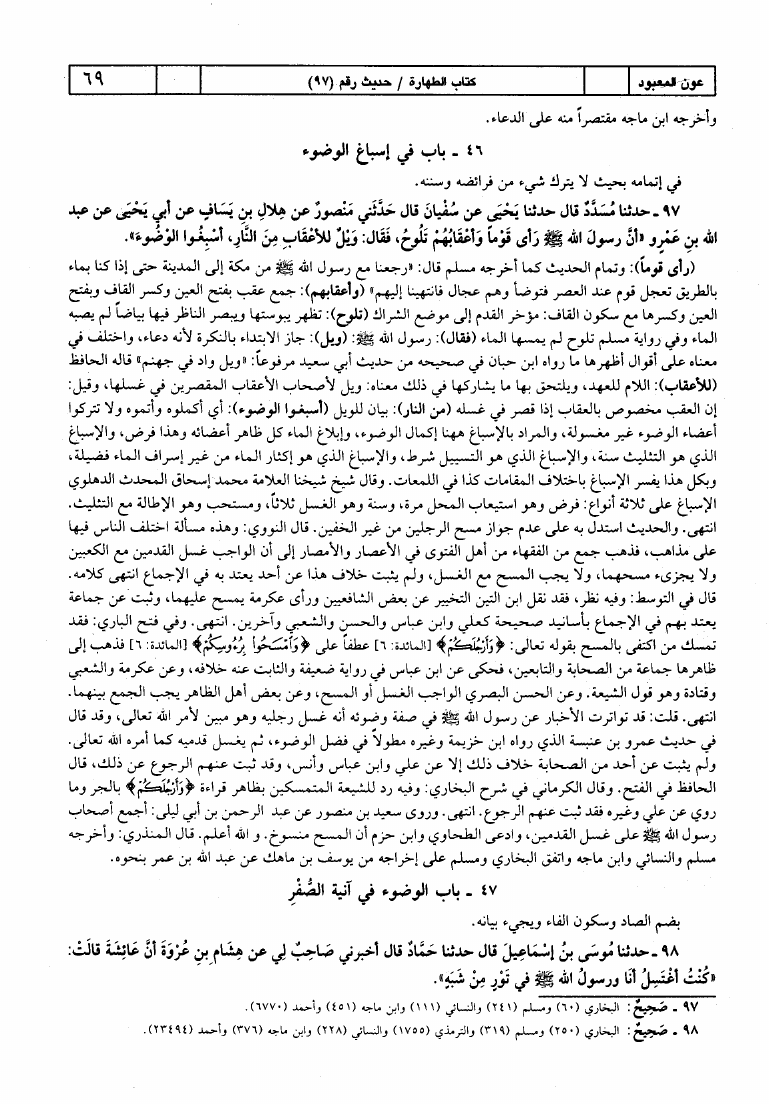 عون المعبود
كتاب الطهارة / حديث رقم (٩٧)
٦٩
وأخرجه ابن ماجه مقتصراً منه على الدعاء.
٤٦ ـ باب في إسباغ الوضوء
في إتمامه بحيث لا يترك شيء من فرائضه وسننه.
٩٧ ـ حدثنا مُسَدَّدٌ قال حدثنا يَحْيَى عن سُفْيانَ قال حَدَّثَني مَنْصورٌ عن هِلالِ بنِ يَسَافٍ عن أبي يَحْيَى عن عبد
الله بنِ عَمْرو «أنَّ رسولَ الله ﷺ رَأى قَوماً وَأعْقابُهُمْ تَلُوحُ، فَقَالَ: وَيْلٌ للأعْقَابِ مِنَ النَّارِ، أسْبِغُوا الوُضُوءَ».
(رأى قوماً): وتمام الحديث كما أخرجه مسلم قال: «رجعنا مع رسول الله ﷺ من مكة إلى المدينة حتى إذا كنا بماء
بالطريق تعجل قوم عند العصر فتوضأ وهم عجال فانتهينا إليهم» (وأعقابهم): جمع عقب بفتح العين وكسر القاف وبفتح
العين وكسرها مع سكون القاف: مؤخر القدم إلى موضع الشراك (تلوح): تظهر يبوستها ويبصر الناظر فيها بياضاً لم يصبه
الماء وفي رواية مسلم تلوح لم يمسها الماء (فقال): رسول الله ﷺ: (ويل): جاز الابتداء بالنكرة لأنه دعاء، واختلف في
معناه على أقوال أظهرها ما رواه ابن حبان في صحيحه من حديث أبي سعيد مرفوعاً: «ويل واد في جهنم» قاله الحافظ
(للأعقاب): اللام للعهد، ويلتحق بها ما يشاركها في ذلك معناه: ويل لأصحاب الأعقاب المقصرين في غسلها، وقيل:
إن العقب مخصوص بالعقاب إذا قصر في غسله (من النار): بيان للويل (أسبغوا الوضوء): أي أكملوه وأتموه ولا تتركوا
أعضاء الوضوء غير مغسولة، والمراد بالإسباغ ههنا إكمال الوضوء، وإبلاغ الماء كل ظاهر أعضائه وهذا فرض، والإسباغ
الذي هو التثليث سنة، والإسباغ الذي هو التسييل شرط، والإسباغ الذي هو إكثار الماء من غير إسراف الماء فضيلة،
وبكل هذا يفسر الإسباغ باختلاف المقامات كذا في اللمعات. وقال شيخ شيخنا العلامة محمد إسحاق المحدث الدهلوي
الإسباغ على ثلاثة أنواع: فرض وهو استيعاب المحل مرة، وسنة وهو الغسل ثلاثاً، ومستحب وهو الإطالة مع التثليث.
انتهى. والحديث استدل به على عدم جواز مسح الرجلين من غير الخفين. قال النووي: وهذه مسألة اختلف الناس فيها
على مذاهب، فذهب جمع من الفقهاء من أهل الفتوى في الأعصار والأمصار إلى أن الواجب غسل القدمين مع الكعبين
ولا يجزىء مسحهما، ولا يجب المسح مع الغسل، ولم يثبت خلاف هذا عن أحد يعتد به في الإجماع انتهى كلامه.
قال في التوسط: وفيه نظر، فقد نقل ابن التين التخيير عن بعض الشافعيين ورأى عكرمة يمسح عليهما، وثبت عن جماعة
يعتد بهم في الإجماع بأسانيد صحيحة كعلي وابن عباس والحسن والشعبي وآخرين. انتهى. وفي فتح الباري: فقد
تمسك من اكتفى بالمسح بقوله تعالى: ﴿وَأَرْجُلَكُمْ﴾ [المائدة: ٦] عطفاً على ﴿وَامْسَحُوا بِرُءُوسِكُمْ﴾ [المائدة: ٦] فذهب إلى
ظاهرها جماعة من الصحابة والتابعين، فحكى عن ابن عباس في رواية ضعيفة والثابت عنه خلافه، وعن عكرمة والشعبي
وقتادة وهو قول الشيعة. وعن الحسن البصري الواجب الغسل أو المسح، وعن بعض أهل الظاهر يجب الجمع بينهما.
انتهى. قلت: قد تواترت الأخبار عن رسول الله ﷺ في صفة وضوئه أنه غسل رجليه وهو مبين لأمر الله تعالى، وقد قال
في حديث عمرو بن عنبسة الذي رواه ابن خزيمة وغيره مطولاً في فضل الوضوء، ثم يغسل قدميه كما أمره الله تعالى.
ولم يثبت عن أحد من الصحابة خلاف ذلك إلا عن علي وابن عباس وأنس، وقد ثبت عنهم الرجوع عن ذلك، قال
الحافظ في الفتح. وقال الكرماني في شرح البخاري: وفيه رد للشيعة المتمسكين بظاهر قراءة ﴿وَأَرْجُلَكُمْ﴾ بالجر وما
روي عن علي وغيره فقد ثبت عنهم الرجوع. انتهى. وروى سعيد بن منصور عن عبد الرحمن بن أبي ليلى: أجمع أصحاب
رسول الله ﷺ على غسل القدمين، وادعى الطحاوي وابن حزم أن المسح منسوخ. و الله أعلم. قال المنذري: وأخرجه
مسلم والنسائي وابن ماجه واتفق البخاري ومسلم على إخراجه من يوسف بن ماهك عن عبد الله بن عمر بنحوه.
٤٧ ـ باب الوضوء في آنية الصُّفْرِ
بضم الصاد وسكون الفاء ويجيء بيانه.
٩٨ ـ حدثنا مُوسَى بنُ إسْماعِيلَ قال حدثنا حَمَّادٌ قال أخبرني صَاحِبٌ لِي عن هِشَامِ بنِ عُرْوَةَ أنَّ عَائِشَةَ قالَتْ:
«كُنْتُ أغْتَسِلُ أنَا ورسولُ الله ﷺ في تَوْرٍ مِنْ شَبَهٍ».
٩٧ ـ صَحِيحٌ: البخاري (٦٠) ومسلم (٢٤١) والنسائي (١١١) وابن ماجه (٤٥١) وأحمد (٦٧٧٠).
٩٨ ـ صَحِيحٌ: البخاري (٢٥٠) ومسلم (٣١٩) والترمذي (١٧٥٥) والنسائي (٢٢٨) وابن ماجه (٣٧٦) وأحمد (٢٣٤٩٤).